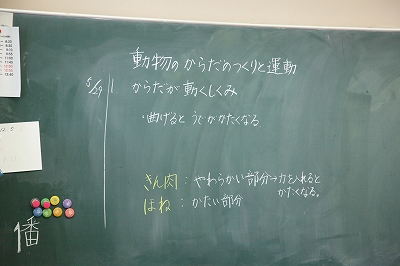 動物のからだのつくりと運動
5/29 1 からだが動くしくみ
・曲げるとうでがかたくなる
きん肉：やわらかい部分→力を入れると
かたくなる。
ほね：かたい部分
幡